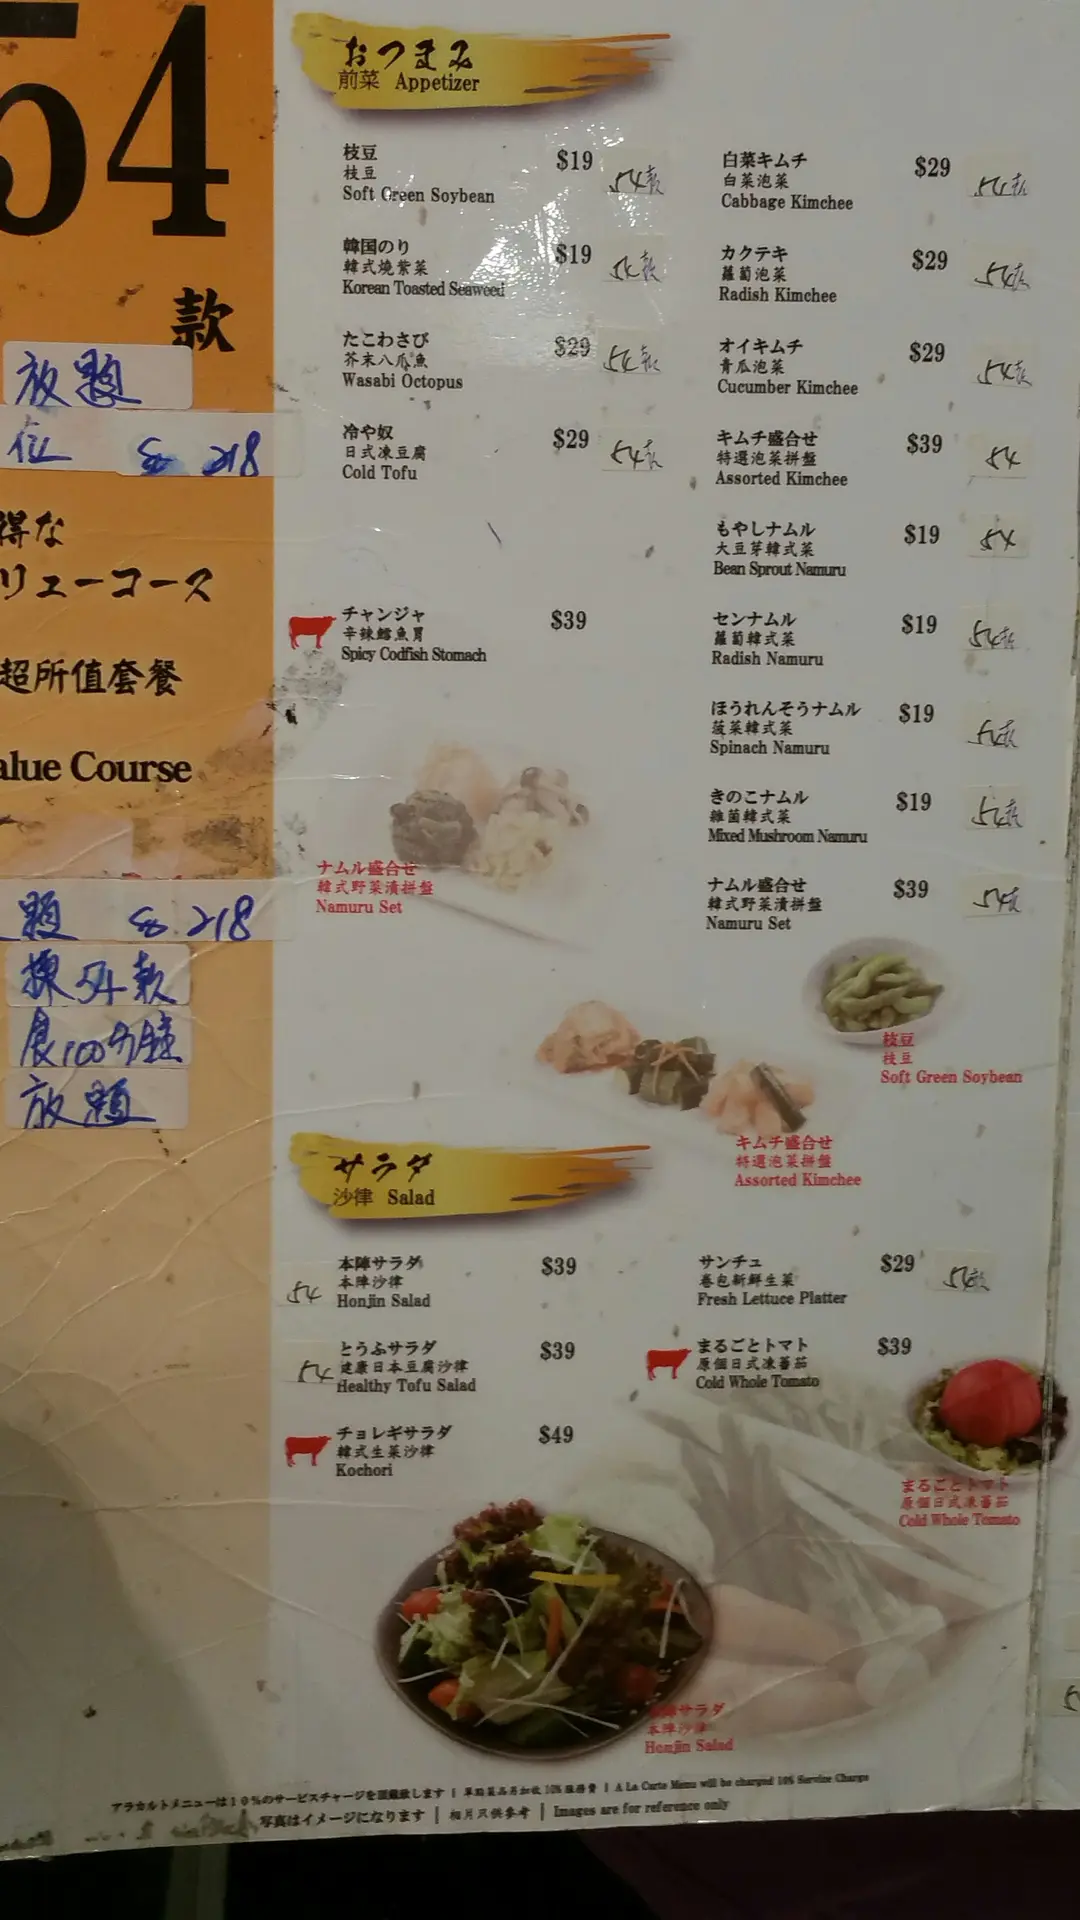 54
款
放題
位 $218
得な
リューコース
超所值套餐
alue Course
題 $218
揀54款
食100分鐘
放題
おつまみ
前菜 Appetizer
枝豆 $19
枝豆 54款
Soft Green Soybean
韓国のり $19
韓式燒紫菜 54款
Korean Toasted Seaweed
たこわさび $29
芥末八爪魚 54款
Wasabi Octopus
冷や奴 $29
日式凍豆腐 54款
Cold Tofu
チャンジャ $39
辛辣鱈魚胃
Spicy Codfish Stomach
ナムル盛合せ
韓式野菜漬拼盤
Namuru Set
白菜キムチ $29
白菜泡菜 54款
Cabbage Kimchee
カクテキ $29
蘿蔔泡菜 54款
Radish Kimchee
オイキムチ $29
青瓜泡菜 54款
Cucumber Kimchee
キムチ盛合せ $39
特選泡菜拼盤 54
Assorted Kimchee
もやしナムル $19
大豆芽韓式菜 54
Bean Sprout Namuru
センナムル $19
蘿蔔韓式菜 54款
Radish Namuru
ほうれんそうナムル $19
菠菜韓式菜 54款
Spinach Namuru
きのこナムル $19
雜菌韓式菜 54款
Mixed Mushroom Namuru
ナムル盛合せ $39
韓式野菜漬拼盤 54款
Namuru Set
枝豆
枝豆
Soft Green Soybean
キムチ盛合せ
特選泡菜拼盤
Assorted Kimchee
サラダ
沙律 Salad
本陣サラダ $39
54 本陣沙律
Honjin Salad
とうふサラダ $39
54 健康日本豆腐沙律
Healthy Tofu Salad
チョレギサラダ $49
韓式生菜沙律
Kochori
サンチュ $29
卷包新鮮生菜 54款
Fresh Lettuce Platter
まるごとトマト $39
原個日式凍蕃茄
Cold Whole Tomato
まるごとトマト
原個日式凍蕃茄
Cold Whole Tomato
本陣サラダ
本陣沙律
Honjin Salad
アラカルトメニューは10%のサービスチャージを頂戴致します | 單點菜品另加收10%服務費 | A La Carte Menu will be charged 10% Service Charge
写真はイメージになります | 相片只供參考 | Images are for reference only